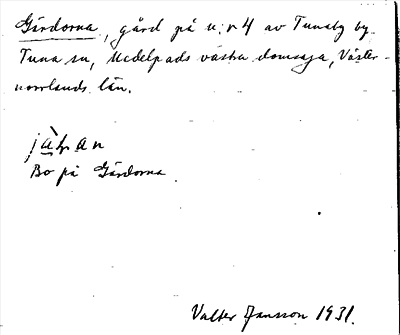 Gårdorna, gård på n:r 4 av Tunaby by.
Tuna sn, Medelpads västra domsaga, Väster-
norrlands län.
Bo på Gårdorna.
Valter Jansson 1931.